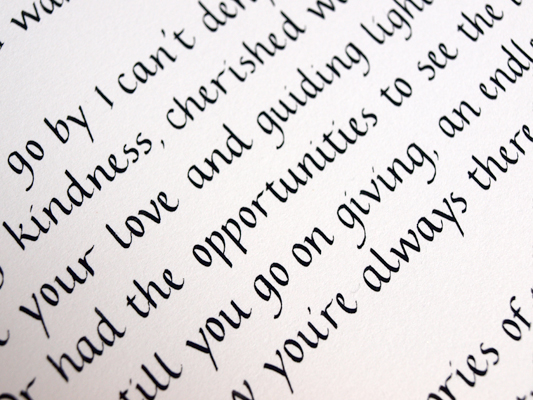 go by I can't
kindness, cherished
your love and guiding light
had the opportunities to see the
still you go on giving, an
you're always there
of